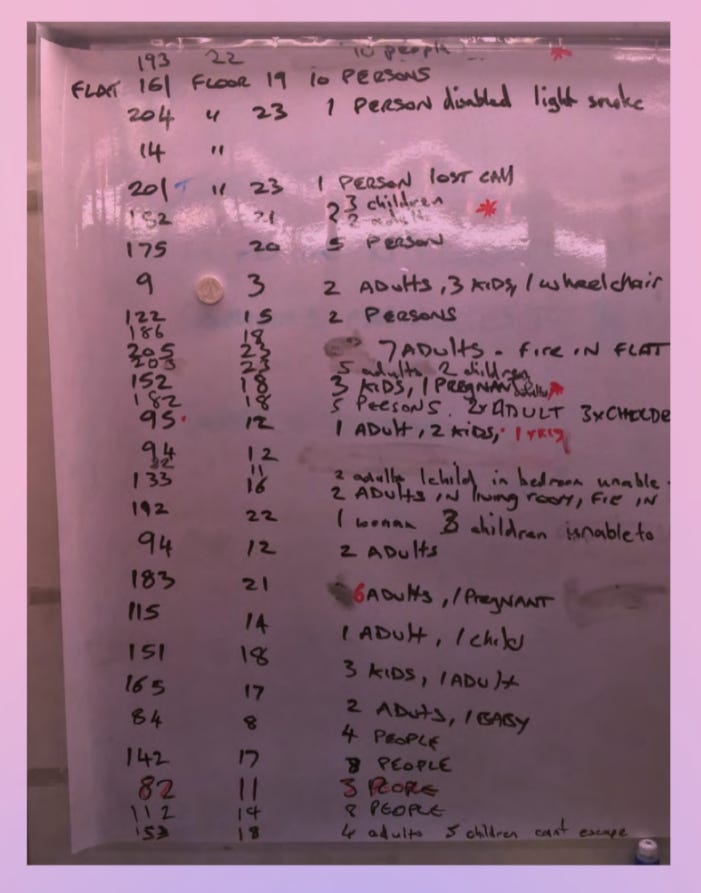 193 22 10 people *
FLAT 161 FLOOR 19 10 PERSONS
204 " 23 1 PERSON disabled light smoke
14 "
201 " 23 1 PERSON lost call
3 children
182 21 2 2 adults *
175 20 5 PERSON
9 3 2 ADults, 3 KIDS, 1 wheelchair
122 15 2 PERSONS
186 18
205 23 7 ADULTS - FIRE IN FLAT
203 23 5 adults 2 children
152 18 3 KIDS, 1 PREGNANT
182 18 5 PERSONS. 2x ADULT 3x
95 12 1 ADULT, 2 KIDS,
94 12
82 11 2 adults 1 child in bedroom unable
133 16 2 ADULTS IN living room, FIRE IN
192 22 1 woman 3 children unable to
94 12 2 ADults
183 21 6 ADults, 1 PREGNANT
115 14 1 ADult, 1 child
151 18 3 KIDS, 1 ADult
165 17 2 ADuts, 1 BABY
84 8 4 PEOPLE
142 17 8 PEOPLE
82 11 3 PEOPLE
112 14 8 PEOPLE
153 18 4 adults 5 children cant escape